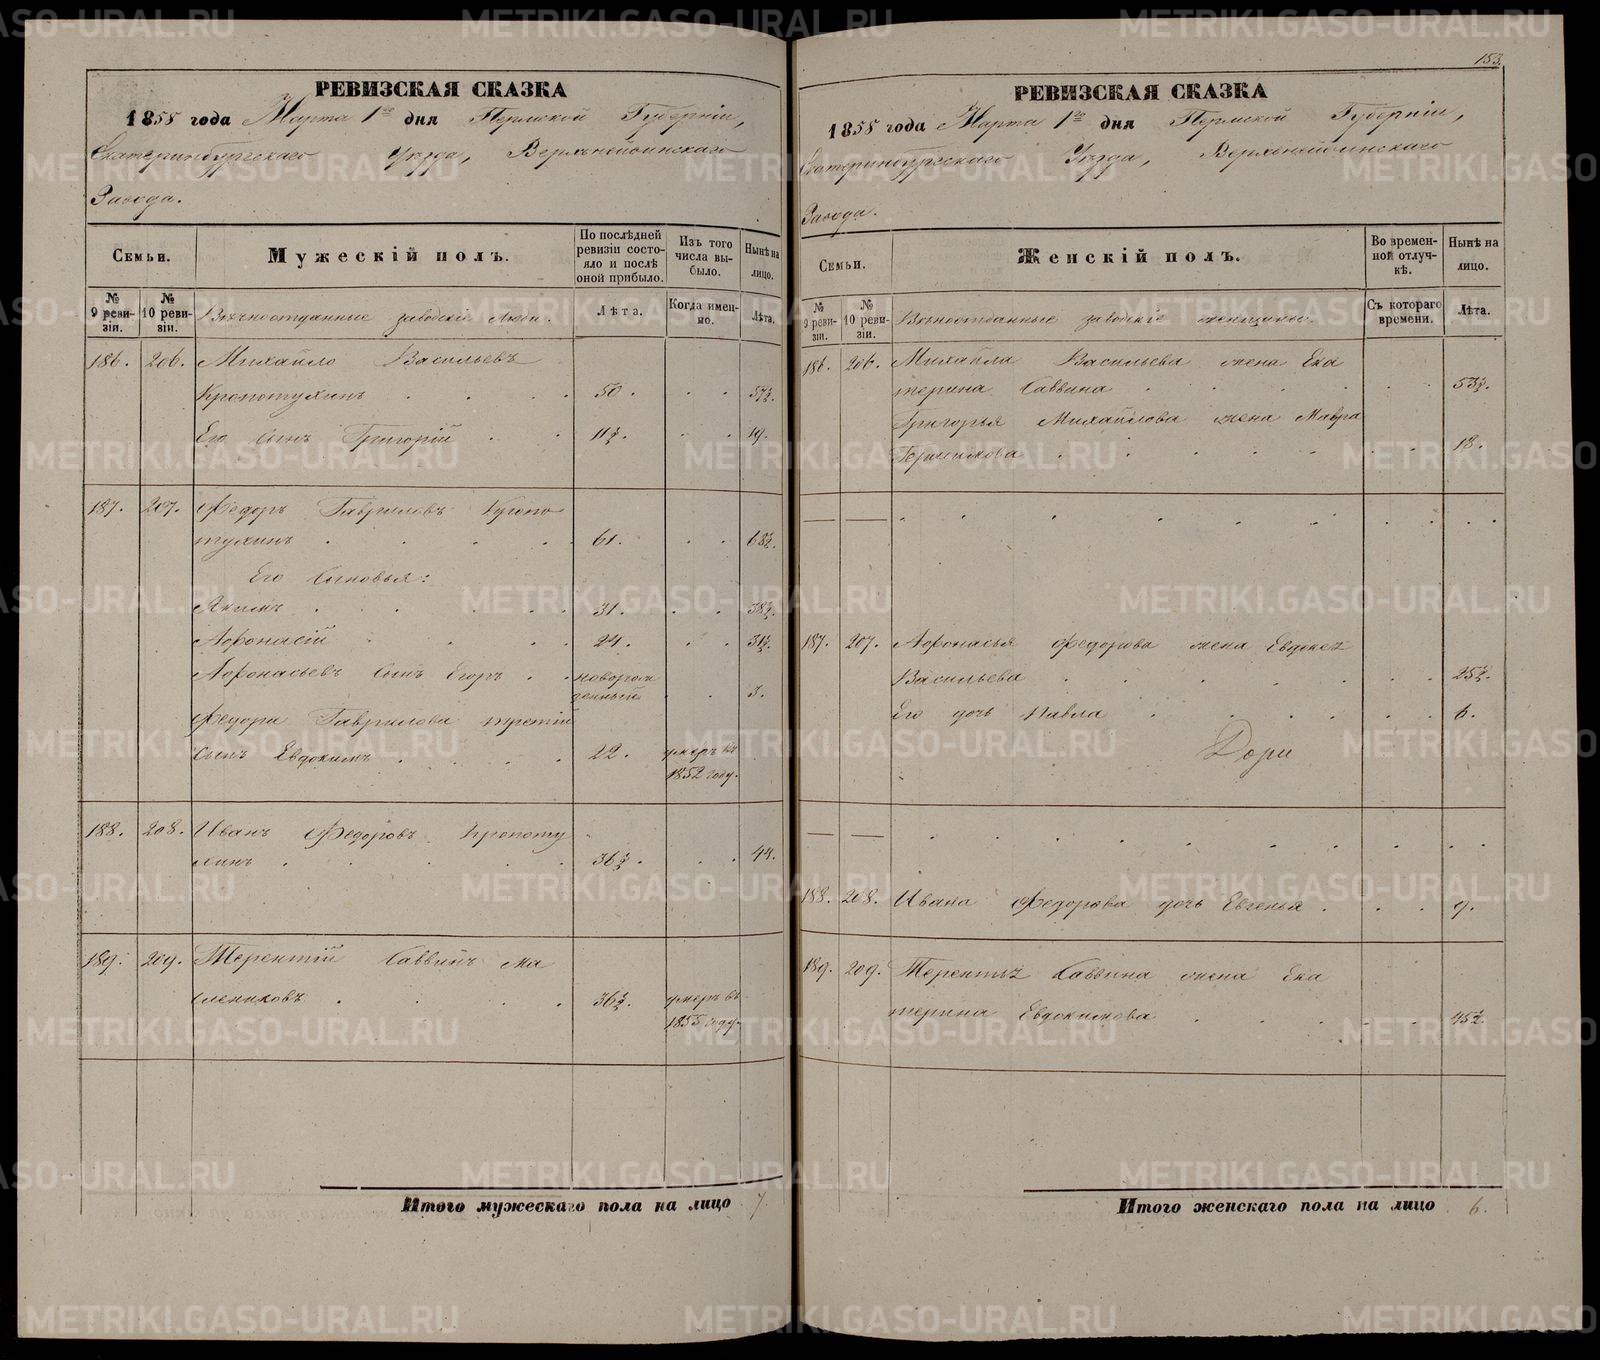 153.
РЕВИЗСКАЯ СКАЗКА
1858 года Марта 1го дня Пермской Губерніи,
Екатеринбургскаго Уезда, Верхънейвинскаго
Завода.
Семьи.
Мужескій полъ.
По послѣдней ревизіи состояло и послѣ оной прибыло.
Изъ того числа выбыло.
Нынѣ на лицо.
№ 9 ревизіи.
№ 10 ревизіи.
Вѣчноотданные заводскіе люди.
Лѣта.
Когда именно.
Лѣта.
186. 206. Михайло Васильевъ
Кропотухинъ 50. 57½.
Его сынъ Григорій 11½. 19.
187. 207. Федоръ Гавриловъ Кропо
тухинъ 61. 68½.
Его Сыновья:
Якимъ 31. 38½.
Афонасій 24. 31½.
Афонасьевъ сынъ Егоръ новорож
денный 3.
Федора Гаврилова третій
сынъ Евдокимъ 22. умеръ въ
1852 году.
188. 208. Иванъ Федоровъ Кропоту
хинъ 36½. 44.
189. 209. Терентій Саввинъ Ма
слениковъ 36½. умеръ въ
1855 году.
Итого мужескаго пола на лицо 7.
РЕВИЗСКАЯ СКАЗКА
1858 года Марта 1го дня Пермской Губерніи,
Екатеринбургскаго Уезда, Верхънейвинскаго
Завода.
Семьи.
Женскій полъ.
Во временной отлучкѣ.
Нынѣ на лицо.
№ 9 ревизіи.
№ 10 ревизіи.
Вѣчноотданные заводскіе женщины.
Съ котораго времени.
Лѣта.
186. 206. Михайла Васильева жена Ека
терина Саввина 53½.
Григорья Михайлова жена Мавра
18.
187. 207. Афонасья Федорова жена Евдокея
Васильева 25½.
Его дочь Павла 6.
188. 208. Ивана Федорова дочь Евгенья 9.
189. 209. Терентья Саввина жена Ека
терина Евдокимова 45½.
Итого женскаго пола на лицо 6.
METRIKI.GASO-URAL.RU